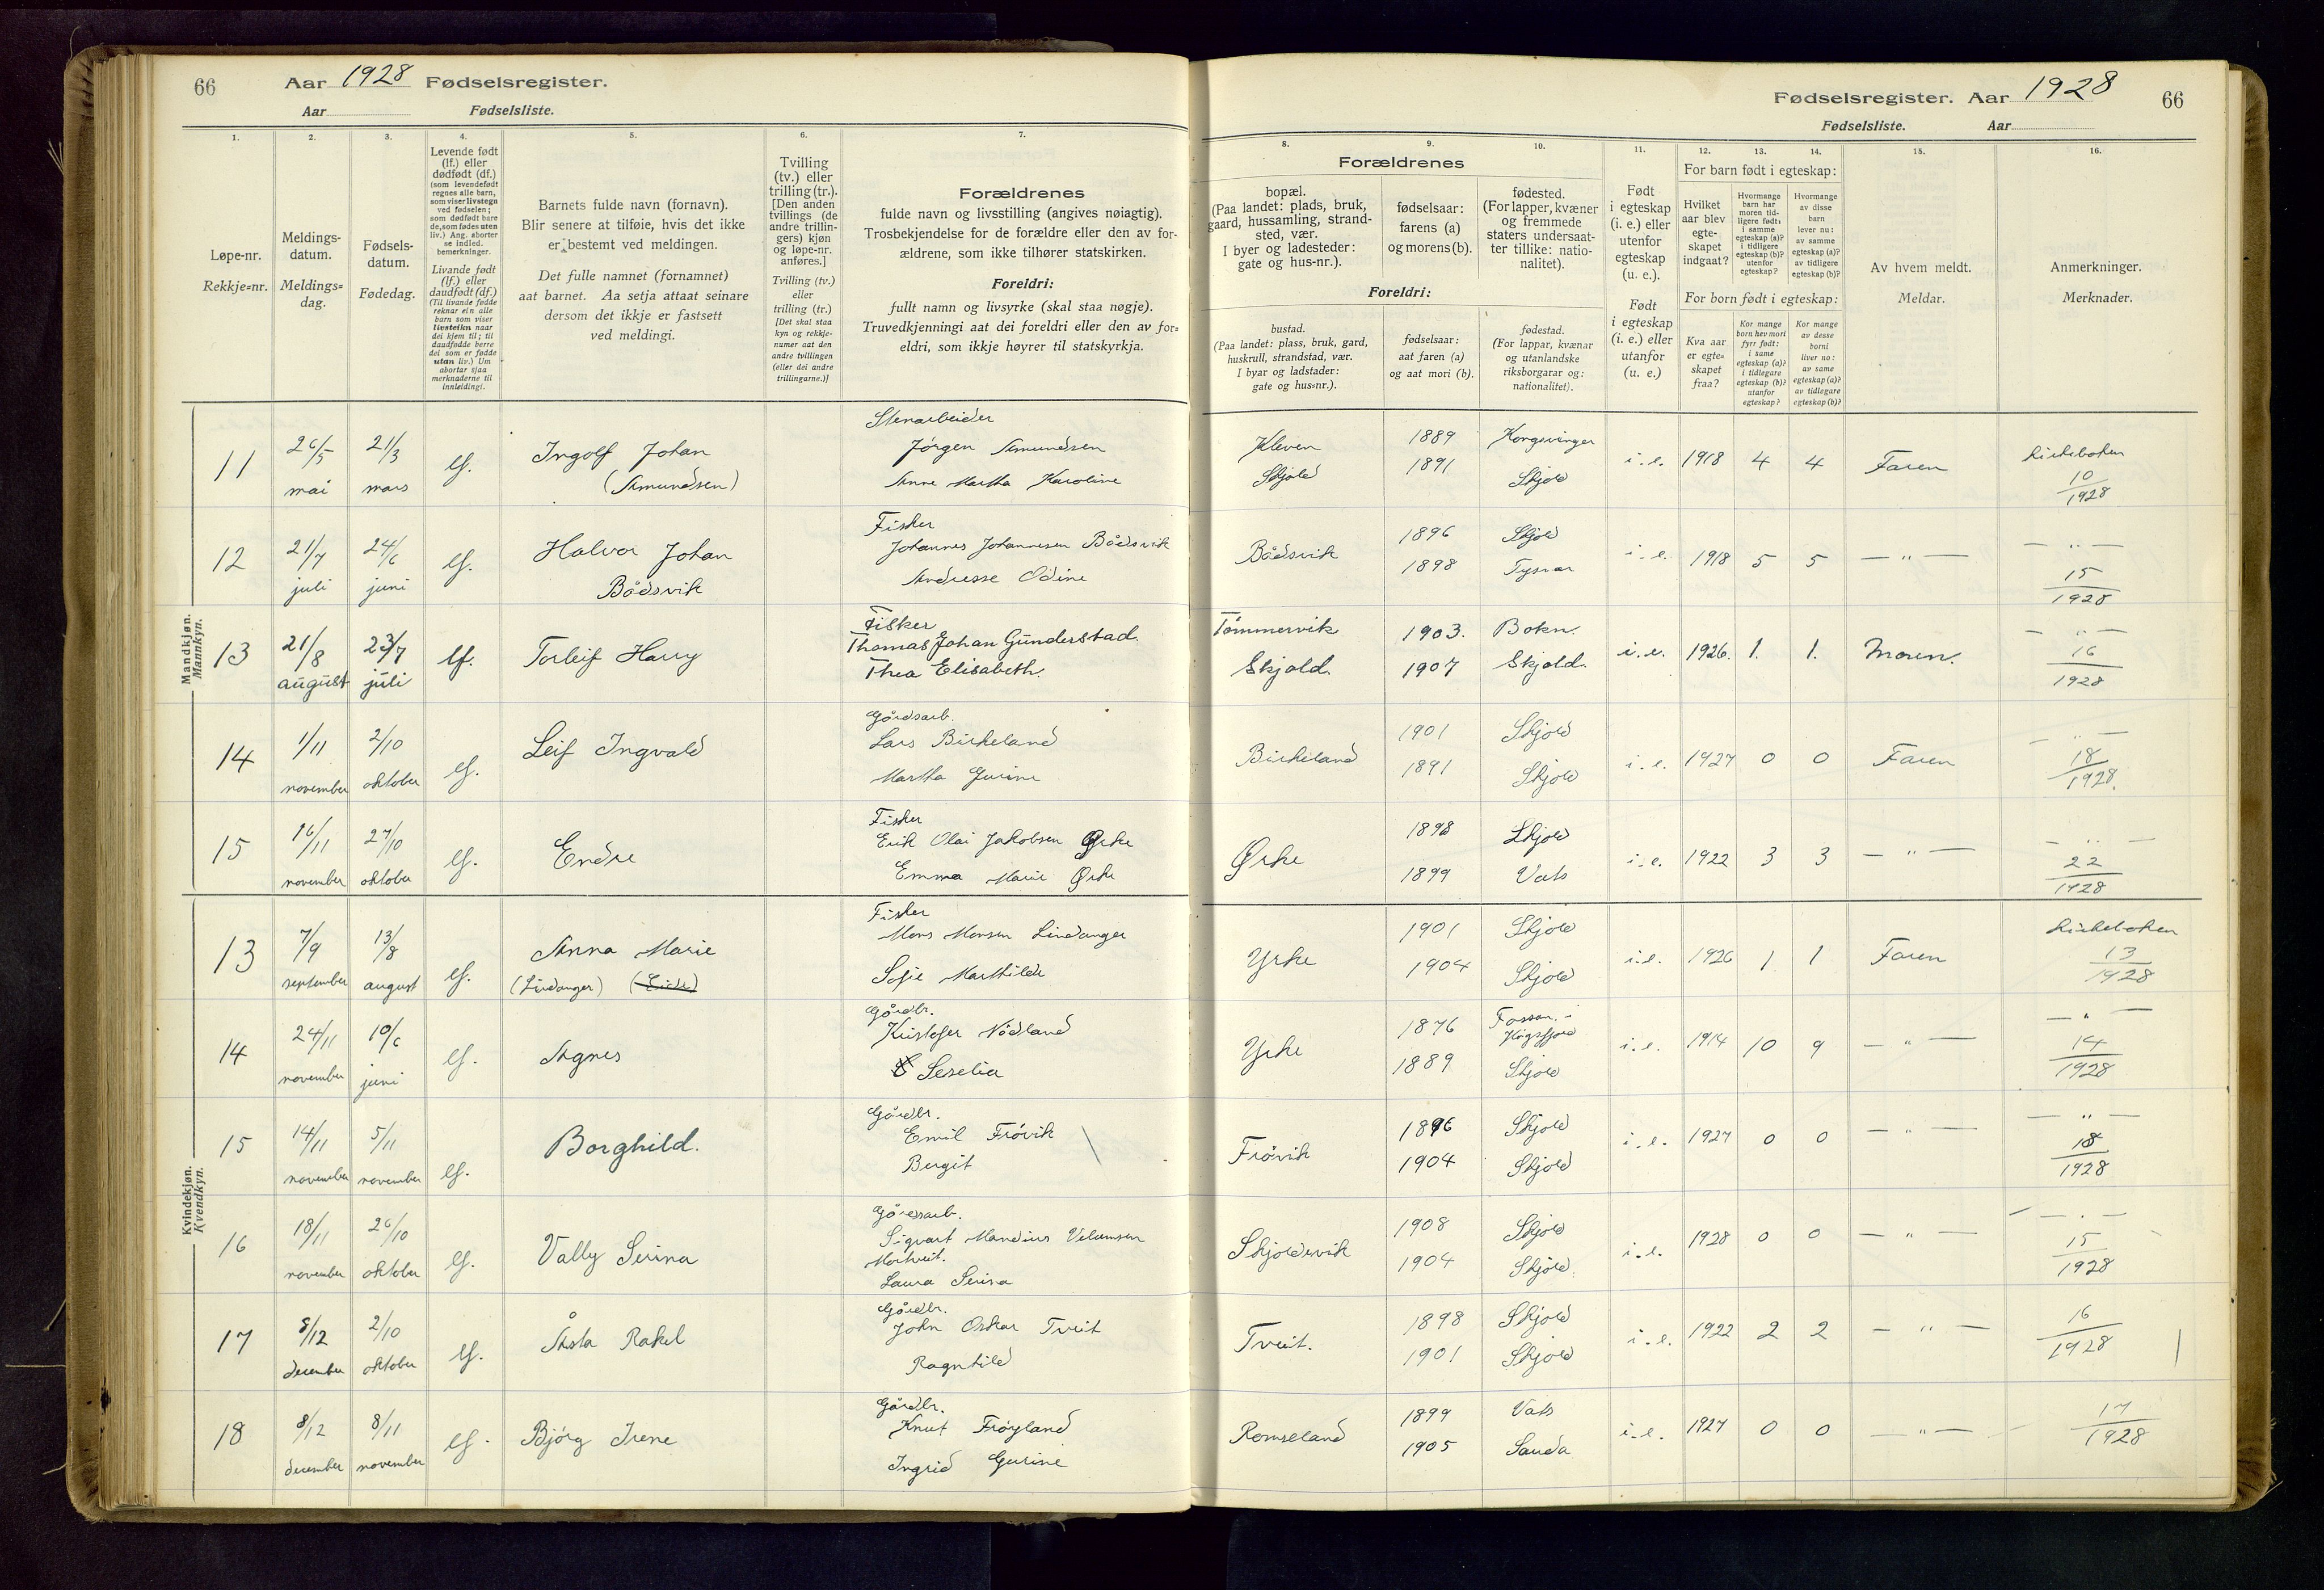 66
Aar 1928 Fødselsregister.
Aar Fødselsliste.
1.
2.
3.
4.
5.
6.
7.
Løpe-nr.
Rekkje=nr.
Meldings-
datum.
Meldings=
dag.
Fødsels-
datum.
Fødedag.
Levende født
(lf.) eller
dødfødt (df.)
(som levendefødt
regnes alle barn,
som viser livstegn
ved fødselen;
som dødfødt bare
de, som fødes uten
liv.) Ang. aborter
se indled.
bemerkninger.
Livande født
(lf.) eller
daudfødt (df.)
(Til livande fødde
reknar ein alle
barn som viser
livsteikn naar
dei kjem til; til
daudfødde berre
dei som er fødde
utan liv.) Um
abortar sjaa
merknaderne til
innleidingi.
Barnets fulde navn (fornavn).
Blir senere at tilføie, hvis det ikke
er bestemt ved meldingen.
Det fulle namnet (fornamnet)
aat barnet. Aa setja attaat seinare
dersom det ikkje er fastsett
ved meldingi.
Tvilling
(tv.) eller
trilling (tr.).
[Den anden
tvillings (de
andre trillin-
gers) kjøn
og løpe-nr.
anføres.]
Tvilling (tv.)
eller
trilling (tr.)
[Det skal staa
kyn og rekkje-
numer aat den
andre tvillingen
(eller dei andre
trillingarne.)]
Forældrenes
fulde navn og livsstilling (angives nøiagtig).
Trosbekjendelse for de forældre eller den av for-
ældrene, som ikke tilhører statskirken.
Foreldri:
fullt namn og livsyrke (skal staa nøgje).
Truvedkjenningi aat dei foreldri eller den av for=
eldri, som ikkje høyrer til statskyrkja.
Mandkjøn.
Mannkyn.
11 26/5 mai 21/3 mars lf. Ingolf Johan (Amundsen)
Stenarbeider
Jörgen Amundsen
Anne Martha Karoline
12 21/7 juli 24/6 juni lf. Halvor Johan Bådsvik
Fisker
Johannes Johannesen Bådsvik
Andresse Odine
13 21/8 august 23/7 juli lf. Torleif Harry
Fisker
Thomas Johan Gunderstad.
Thea Elisabeth.
14 1/11 november 2/10 oktober lf. Leif Ingvald
Gårdsarb.
Lars Birkeland
Martha Gurine
15 16/11 november 27/10 oktober lf. Endre
Fisker
Erik Olai Jakobsen Ørke
Emma Marie Ørke
Kvindekjøn.
Kvendkyn.
13 7/9 september 13/8 august lf. Anna Marie
(Lindanger)
Fisker
Mons Monsen Lindanger
Sofie Marthilde
14 24/11 november 10/6 juni lf. Agnes
Gårdbr.
Kristofer Nödland
Serelia
15 14/11 november 5/11 november lf. Borghild.
Gårdbr.
Emil Frövik
Bergit
16 18/11 november 26/10 oktober lf. Vally Serina
Gårdsarb.
Sigvart Mandius
Laura Serina
17 8/12 december 2/10 oktober lf. Åsta Rakel
Gårdbr.
John Oskar Tveit
Ragnhild
18 8/12 december 8/11 november lf. Bjørg Irene
Gårdbr.
Knut Frøyland
Ingrid Gurine
Fødselsregister. Aar 1928
66
Fødselsliste. Aar
8.
9.
10.
11.
12.
13.
14.
15.
16.
Forældrenes
bopæl.
(Paa landet: plads, bruk,
gaard, hussamling, strand-
sted, vær.
I byer og ladesteder:
gate og hus-nr.).
fødselsaar:
farens (a)
og morens (b).
fødested.
(For lapper, kvæner
og fremmede
staters undersaat-
ter tillike: natio-
nalitet).
Foreldri:
bustad.
(Paa landet: plass, bruk, gard,
huskrull, strandstad, vær.
I byar og ladstader:
gate og hus=nr.).
fødselsaar:
aat faren (a)
og aat mori (b).
fødestad.
(For lappar, kvænar
og utanlandske
riksborgarar og:
nationalitet).
Født
i egteskap
(i. e.) eller
utenfor
egteskap
(u. e.).
Født
i egteskap
(i. e.) eller
utanfor
egteskap
(u. e.)
For barn født i egteskap:
Hvilket
aar blev
egte-
skapet
indgaat?
Hvormange
barn har
moren tid-
ligere født:
i samme
egteskap (a)?
i tidligere
egteskap (b)?
utenfor
egteskap?
Hvormange
av disse
barn
lever nu:
av samme
egteskap (a)?
av tidligere
egteskap (b)?
For born født i egteskap:
Kva aar
er egte=
skapet
fraa?
Kor mange
born hev mori
fyrr født:
i same
egteskap (a)?
i tidlegare
egteskap (b)?
utanfor
egteskap?
Kor mange
av desse
borni
liver no:
av same
egteskap (a)?
av tidlegare
egteskap (b)?
Av hvem meldt.
Meldar.
Anmerkninger.
Merknader.
Kleven Skjold 1889 1891 Kongsvinger Skjold i.e. 1918 4 4 Faren Kirkeboken 10/1928
Bådsvik 1896 1898 Skjold Tysvær i.e. 1918 5 5 — " — — " — 15/1928
Tömmervik Skjold. 1903. 1907 Bokn. Skjold. i.e. 1926. 1. 1. Moren. — " — 16/1928
Birkeland 1901 1891 Skjold Skjold i.e. 1927 0 0 Faren — " — 18/1928.
Ørke 1898 1899 Skjold Vats i.e. 1922 3 3 — " — — " — 22/1928
Yrke 1901 1904 Skjold Skjold i.e. 1926 1 1 Faren Kirkeboken 13/1928
Yrke 1876 1889 Skjold i.e. 1914 10 9 — " — — " — 14/1928
Frövik 1896 1904 Skjold Skjold i.e. 1927 0 0 — " — — " — 18/1928
Skjoldevik 1908 1904 Skjold Skjold. i.e. 1928 0 0 — " — — " — 15/1928
Tveit. 1898 1901 Skjold Skjold i.e. 1922 2 2 — " — 16/1928
Romseland 1899 1905 Vats Sauda i.e. 1927 0 0 — " — 17/1928